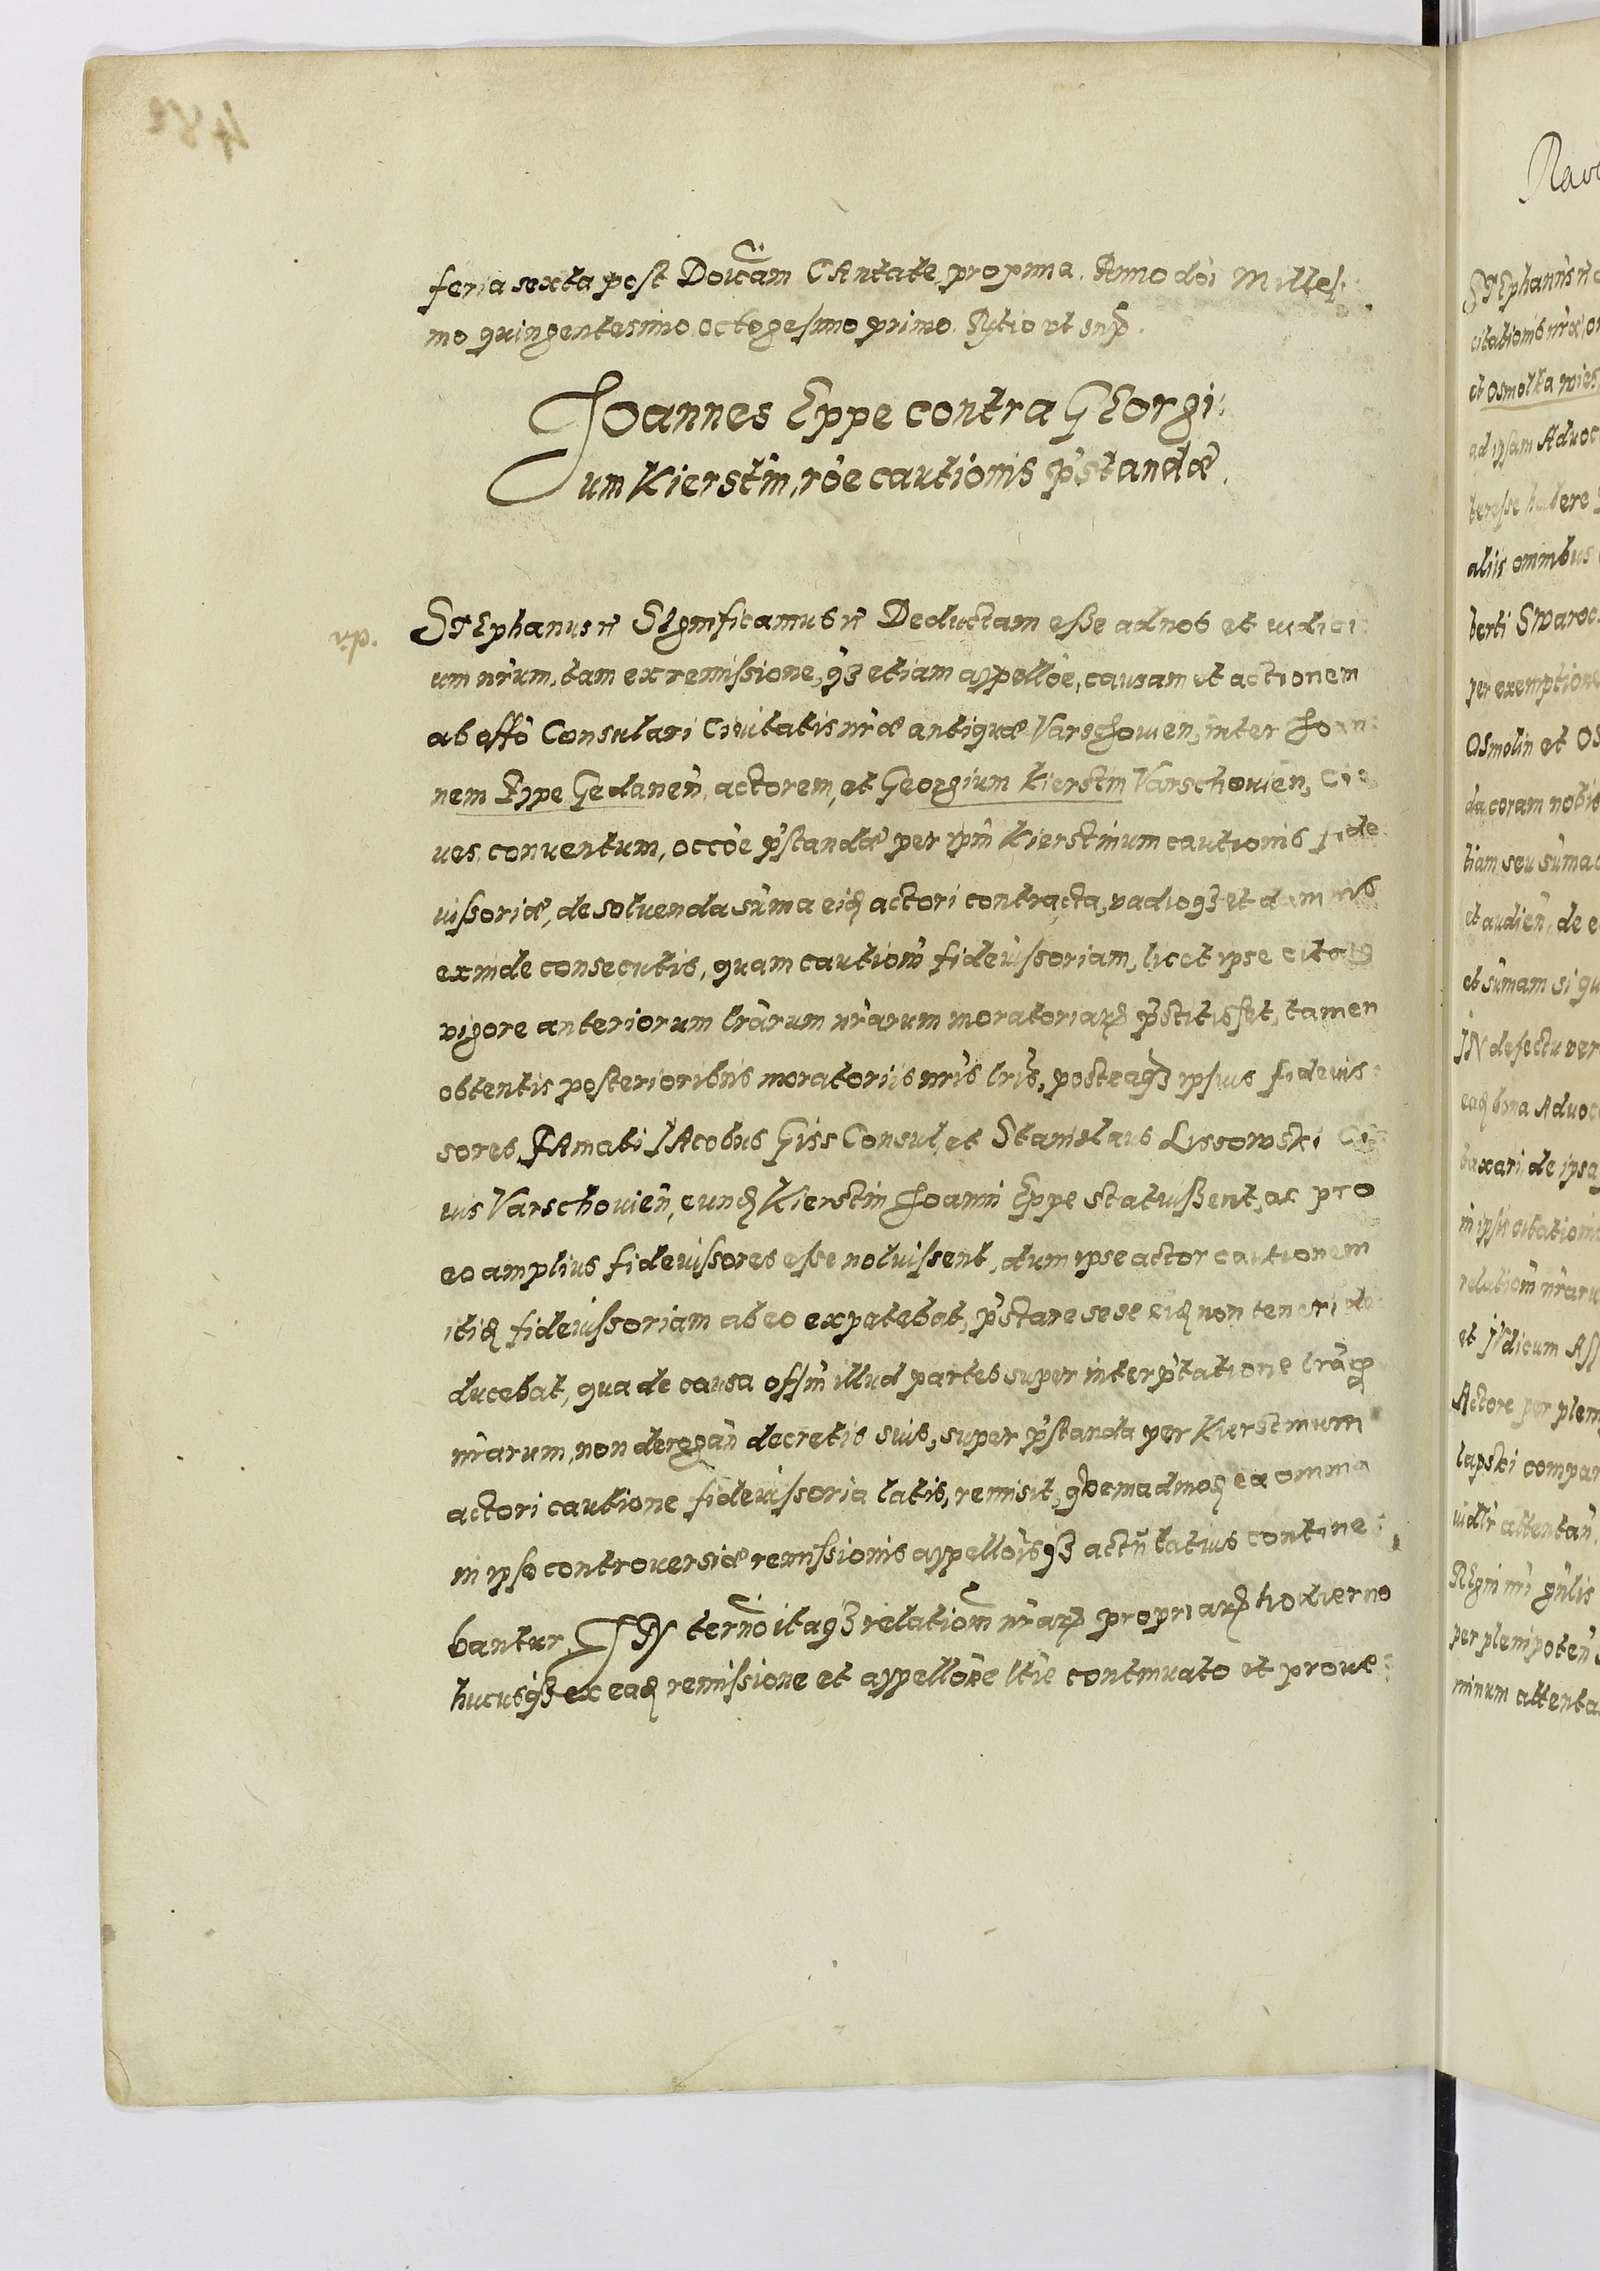 feria sexta post Doicam CAntate proxima. Anno doi Milles:
mo quingentesimo octogesimo primo. Rytio ut sup.
Joannes Eppe contra GEorgi:
um Kierstin, roe cautionis pstandæ.
STEphanus rt SIgnificamus rt Deductam esse ad nos et iudici:
um nrum, tam ex remissione, q3 etiam appelloe, causam et actionem
ab offo Consulari Civitatis nræ antiquæ Varschovien, inter Joan:
nem Eppe Gedanen, actorem, et Georgium Kierstin Varschovien, Ci
ves, conventum, occoe pstandæ per ipm Kierstinum cautionis fide
iussoriæ, de solvenda suma eid actori contracta, vadioq3 et damnis
exinde consecutis, quam cautiom fideiussoriam, licet ipse
vigore anteriorum lrarum nrarum moratoriarz pstitisset, tamen
obtentis posterioribus moratoriis nris lris, posteaq3 ipsius fideius:
sores, FAmati JAcobus Giss Consul, et Stanislaus Lissowski Ci:
vis Varschovien, eund Kierstin Joanni Eppe statuissent, ac pro
eo amplius fideiussores esse noluissent, dum ipse actor cautionem
itid fideiussoriam ab eo expetebat, pstare sese eid non teneri de
ducebat, qua de causa offm illud partes super interptatione lrarz
nrarum, non derogan decretis suis, super pstanda per Kierstinum
actori cautione fideiussoria latis, remisit, quemadmod ea omnia
in ipso controversiæ remissionis appelloisq3 actu latius contine:
bantur. IN terno itaq3 relatiom nrarz propriarz hodierno
hucusq3 ex ead remissione et appelloe ltie continuato et prove:
Rav
STEphanus rt
citationis nræ, or
et Osmolka wies
ad ipsam Advoc
teresse habere
aliis omnibus
berti Swaroc
per exemptione
Osmolin et Os
da coram nobis
tiam seu suma
et audien, de e
et sumam si qu
IN defectu ver
ead bona Advoc
taxari, de ipsa
in ipsis citationi
relatiom nraru
et JVdicum Ass
Actore per plen
lapski compar
vidlr attentan.
REgni nri gnlis
per plenipoten
minum attenta